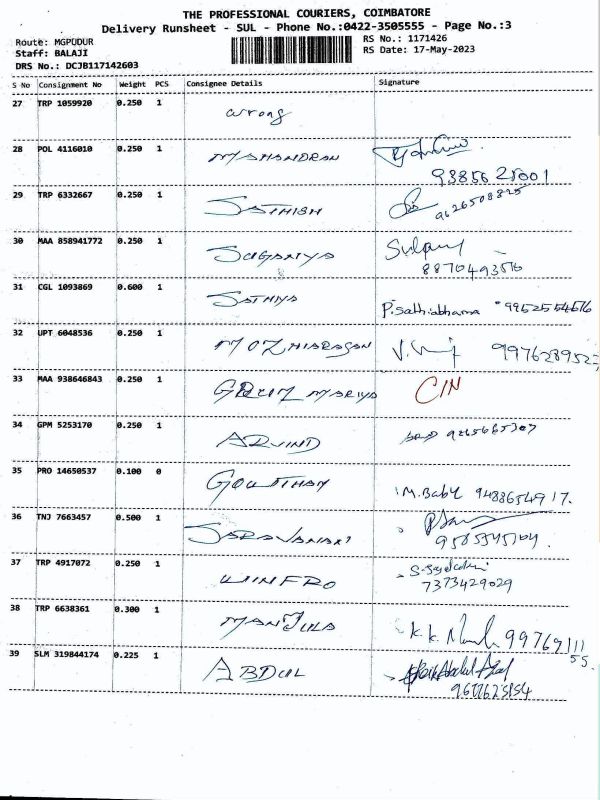 THE PROFESSIONAL COURIERS, COIMBATORE
Delivery Runsheet - SUL - Phone No.:0422-3505555 - Page No.:3
Route: MGPUDUR
RS No.: 1171426
Staff: BALAJI
RS Date: 17-May-2023
DRS No.: DCJB117142603
S No Consignment No Weight PCS Consignee Details Signature
27 TRP 1059920 0.250 1 wrong
28 POL 4116010 0.250 1 MAHANDRAN
9385625001
29 TRP 6332667 0.250 1 SATHISH
9626508825
30 MAA 858941772 0.250 1 SUGANYA
31 CGL 1093869 0.600 1 SATHIYA P.sathiabhama 9952554516
32 UPT 6048536 0.250 1 MOZHIARASAN
33 MAA 938646843 0.250 1 MARIYA C/N
34 GPM 5253170 0.250 1 ARVIND
35 PRO 14650537 0.100 0 GOWTHAM M.Baby 9488654917.
36 TNJ 7663457 0.500 1 SARAVANAN
37 TRP 4917072 0.250 1 WINFRO
7373429029
38 TRP 6638361 0.300 1 MANJULA K.K. 99769111
55.
39 SLM 319844174 0.225 1 ABDUL